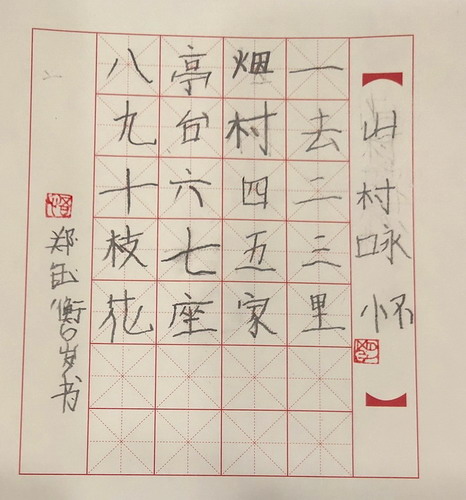 山村咏怀
一去二三里
烟村四五家
亭台六七座
八九十枝花
郑钰衡6岁书